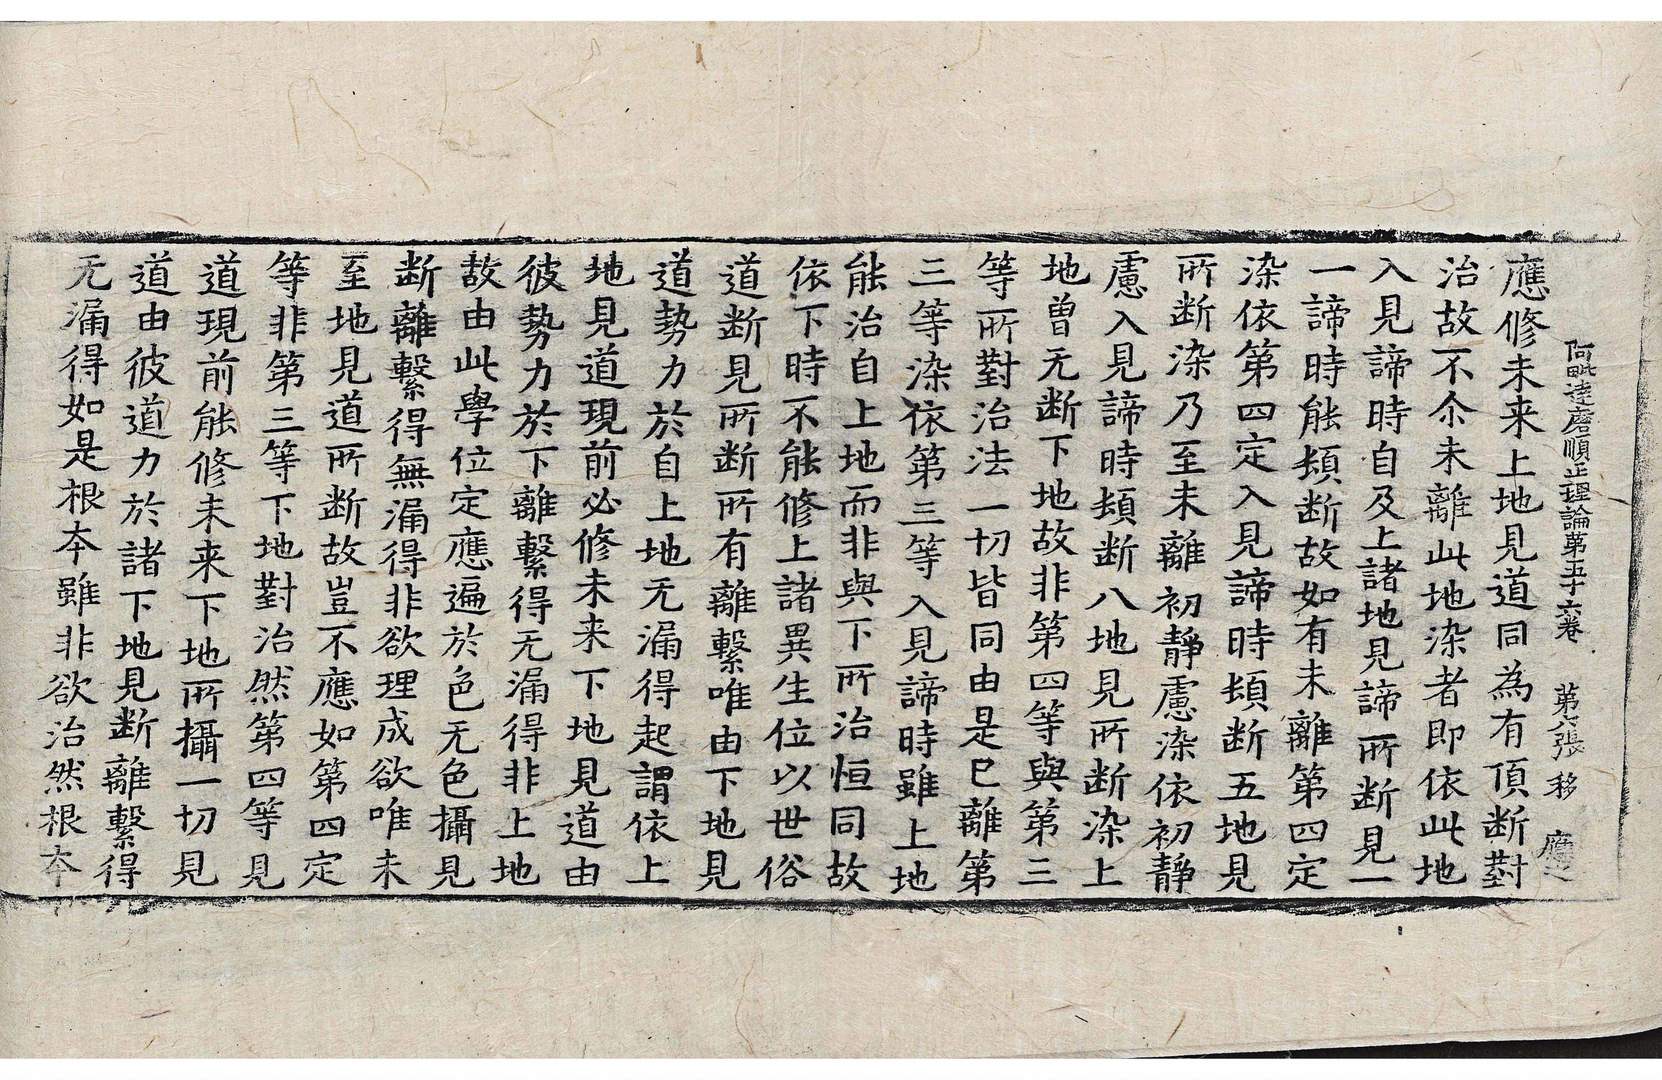 阿毗達磨順正理論第五十六卷 第六張 移 應
應修未来上地見道同為有頂断對
治故不尒未離此地染者即依此地
入見諦時自及上諸地見諦所断見一
一諦時能頓断故如有未離第四定
染依第四定入見諦時頓断五地見
所断染乃至未離初靜慮染依初靜
慮入見諦時頓断八地見所断染上
地曾无断下地故非第四等與第三
等所對治法一切皆同由是已離第
三等染依第三等入見諦時雖上地
能治自上地而非與下所治恒同故
依下時不能修上諸異生位以世俗
道断見所断所有離繫唯由下地見
道勢力於自上地无漏得起謂依上
地見道現前必修未来下地見道由
彼勢力於下離繫得无漏得非上地
故由此學位定應遍於色无色攝見
断離繫得無漏得非欲理成欲唯未
至地見道所断故豈不應如第四定
等非第三等下地對治然第四等見
道現前能修未来下地所攝一切見
道由彼道力於諸下地見断離繫得
无漏得如是根夲雖非欲治然根夲